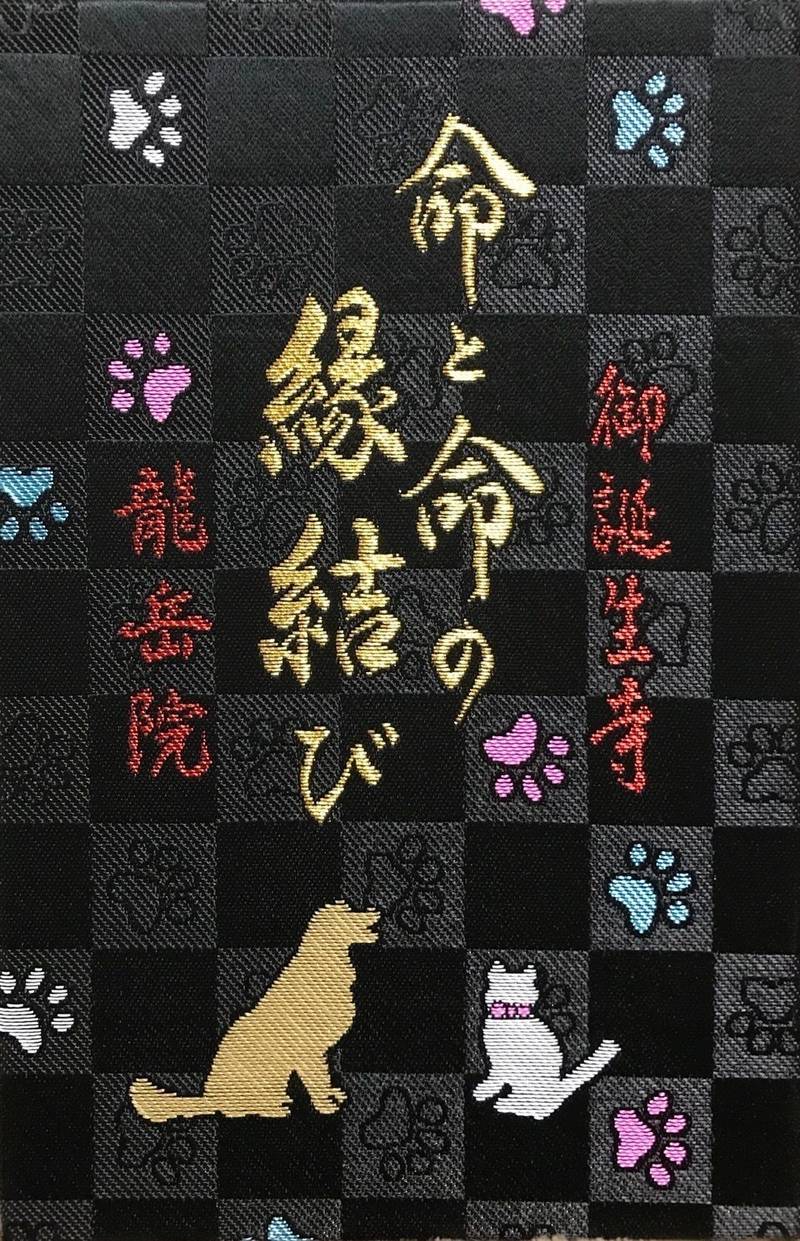 御誕生寺
命と命の
縁結び
龍岳院